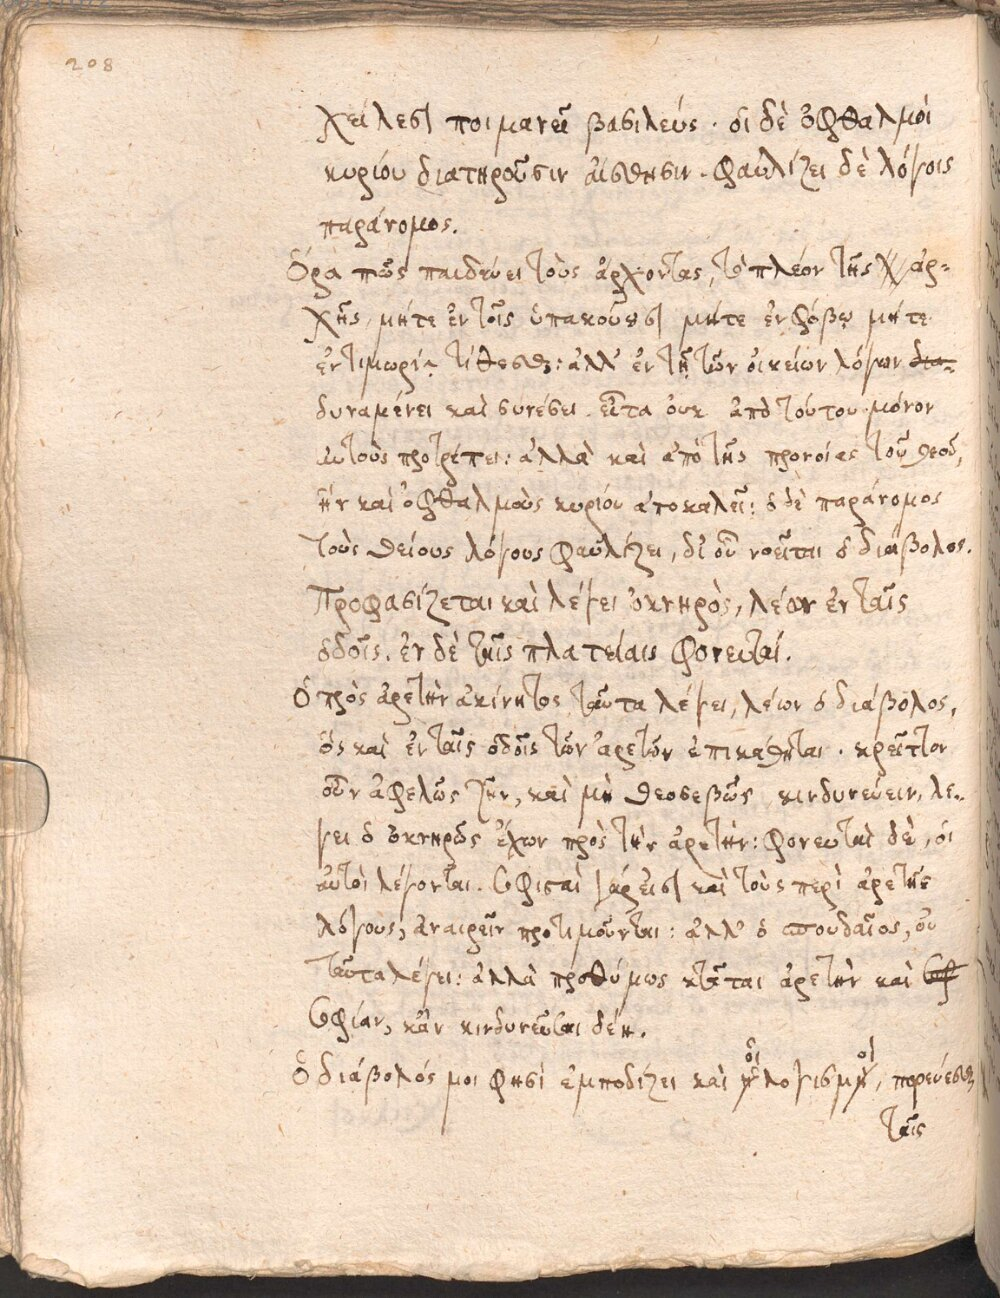 208
χείλεσι ποιμανεῖ βασιλεύς. οἱ δὲ ὀφθαλμοὶ
κυρίου διατηροῦσιν αἴσθησιν. φαυλίζει δὲ λόγοις
παράνομος.
Ὅρα πῶς παιδεύει τοὺς ἄρχοντας, τὸ πλέον τῆς ἀρ-
χῆς, μήτε ἐν τοῖς ὑπακούωσι μήτε ἐν φόβῳ μήτε
ἐν τιμωρίᾳ τίθεσθαι: ἀλλ' ἐν τῇ τῶν οἰκείων λόγων
δυναμένει καὶ συνέσει. εἶτα οὐκ ἀπὸ τούτου μόνον
αὐτοὺς προτρέπει: ἀλλὰ καὶ ἀπὸ τῆς προνοίας τοῦ θεοῦ,
ἣν καὶ ὀφθαλμοὺς κυρίου ἀποκαλεῖ: ὁ δὲ παράνομος
τοὺς θείους λόγους φαυλίζει, δι' οὗ νοεῖται ὁ διάβολος.
Προφασίζεται καὶ λέγει ὀκνηρὸς, λέων ἐν ταῖς
ὁδοῖς. ἐν δὲ ταῖς πλατείαις φονευταί.
Ὁ πρὸς ἀρετὴν ἀκίνητος ταῦτα λέγει, λέων ὁ διάβολος,
ὃς καὶ ἐν ταῖς ὁδοῖς τῶν ἀρετῶν ἐπικάθηται. κρεῖττον
οὖν ἀφελῶς ζῆν, καὶ μὴ θεοσεβῶς κινδυνεύειν, λέ-
γει ὁ ὀκνηρῶς ἔχων πρὸς τὴν ἀρετήν: φονευταὶ δὲ, οἱ
αὐτοὶ λέγονται. σοφισταὶ καὶ τοὺς περὶ ἀρετῆς
λόγους, ἀναιρεῖν προτιμοῦνται: ἀλλ' ὁ σπουδαῖος, οὐ
ταῦτα λέγει: ἀλλὰ προθύμως κτᾶται ἀρετὴν καὶ
σοφίαν, κἂν κινδυνεῦσαι δέῃ.
Ὁ διάβολός μοι φησὶ ἐμποδίζει καὶ οἱ λογισμοὶ, πορεύεσθαι
ταῖς